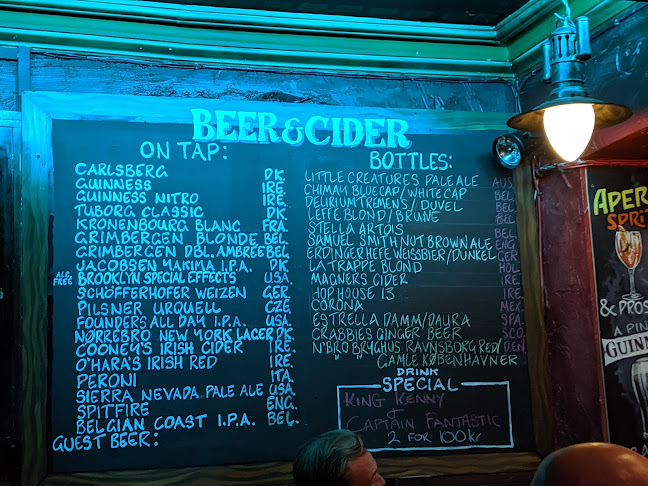 BEER & CIDER
ON TAP:
CARLSBERG DK
GUINNESS IRE.
GUINNESS NITRO IRE.
TUBORG CLASSIC DK.
KRONENBOURG BLANC FRA
GRIMBERGEN BLONDE BEL.
GRIMBERGEN DBL. AMBREE BEL
JACOBSEN MAKIMA I.P.A. DK
ALC. FREE BROOKLYN SPECIAL EFFECTS USA
SCHÖFFERHOFER WEIZEN GER.
PILSNER URQUELL CZE
FOUNDERS ALL DAY I.P.A. USA
NØRREBRO NEW YORK LAGER DK
COONEY'S IRISH CIDER IRE.
O'HARA'S IRISH RED IRE.
PERONI ITA
SIERRA NEVADA PALE ALE USA
SPITFIRE ENG.
BELGIAN COAST I.P.A. BEL.
GUEST BEER:
BOTTLES:
LITTLE CREATURES PALE ALE AUS
CHIMAY BLUE CAP/WHITE CAP BEL.
DELIRIUM TREMENS/DUVEL BEL
LEFFE BLOND/BRUNE BEL
STELLA ARTOIS BEL
SAMUEL SMITH NUT BROWN ALE ENG
ERDINGER HEFE WEISSBIER/DUNKEL GER
LA TRAPPE BLOND HOL
MAGNERS CIDER IRE.
HOP HOUSE 13 IRE.
CORONA MEX.
ESTRELLA DAMM/DAURA SPA
CRABBIES GINGER BEER SCO
N'BRO BRYGHUS RAVNSBORG RED/ DEN.
" " GAMLE KØBENHAVNER
DRINK
SPECIAL
KING KENNY
&
CAPTAIN FANTASTIC
2 FOR 100kr
APER
SPRIT
& PROS
A PIN
GUINN